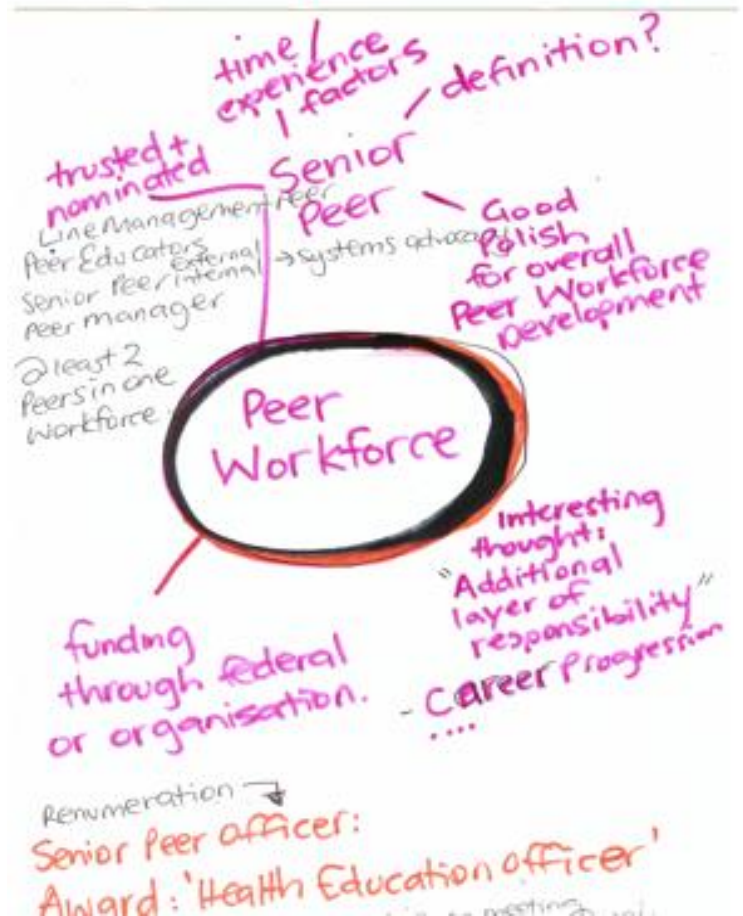 time/
experience
factors
definition?
trusted +
nominated
Senior
Peer
Line Management Peer
Peer Educators
External
Senior Peer internal → systems advocacy
Peer manager
@least 2
Peers in one
workforce
Good
Polish
for overall
Peer Workforce
Development
Peer
Workforce
Interesting
thought:
"Additional
layer of
responsibility"
- Career Progression
....
funding
through federal
or organisation.
Renumeration
Senior Peer officer:
Award: 'Health Education officer'
meeting